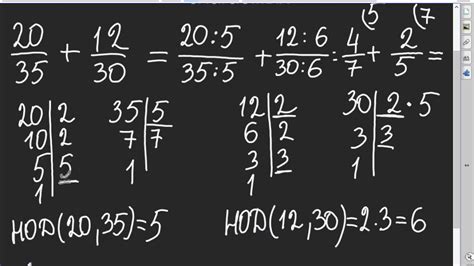 20/35 + 12/30 = 20:5/35:5 + 12:6/30:6 = 4/7 (5 + 2/5 (7 =
20|2 35|5 12|2 30|2·5
10|2 7|7 6|2 3|3
5|5 1 3|3 1
1 1
НОД(20,35)=5 НОД(12,30)=2·3=6